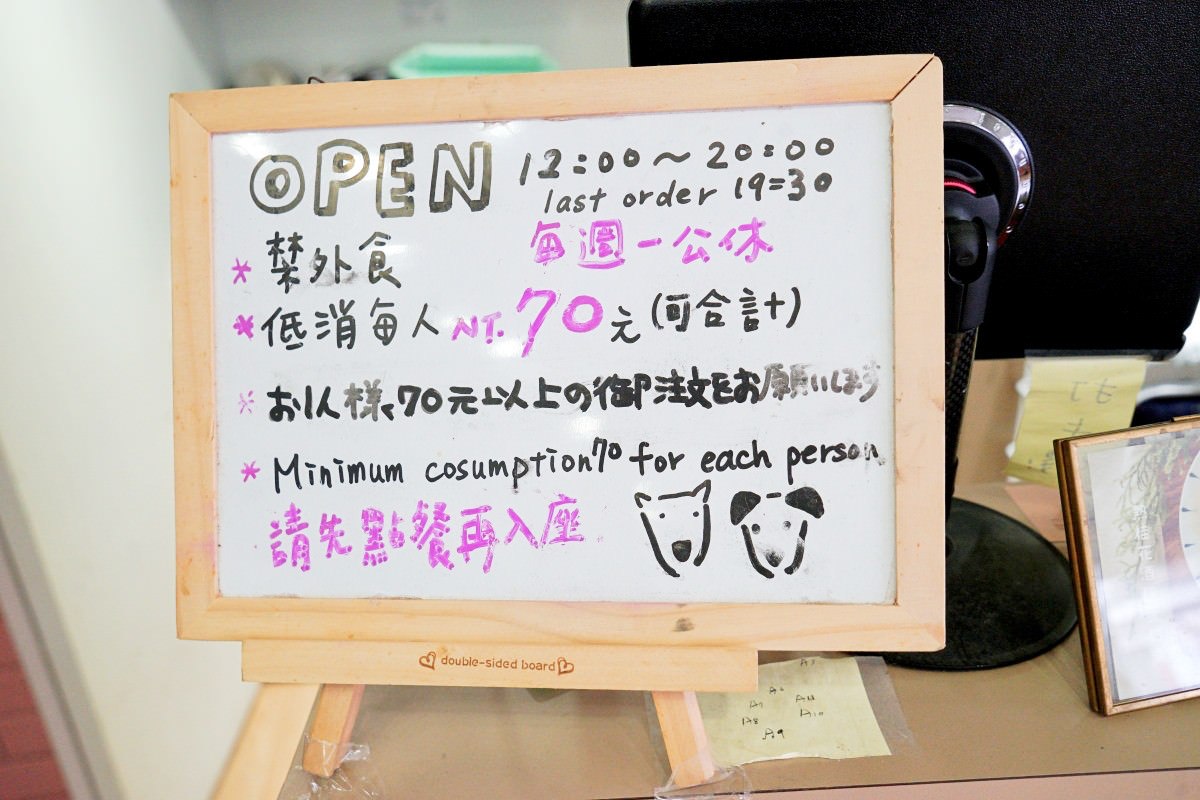 OPEN 12:00～20:00
last order 19:30
每週一公休
* 禁外食
* 低消每人 NT.70元(可合計)
* お1人様、70元以上の御注文をお願いします
* Minimum cosumption 70 for each person.
請先點餐再入座
double-sided board
A7
A8
A10
A9